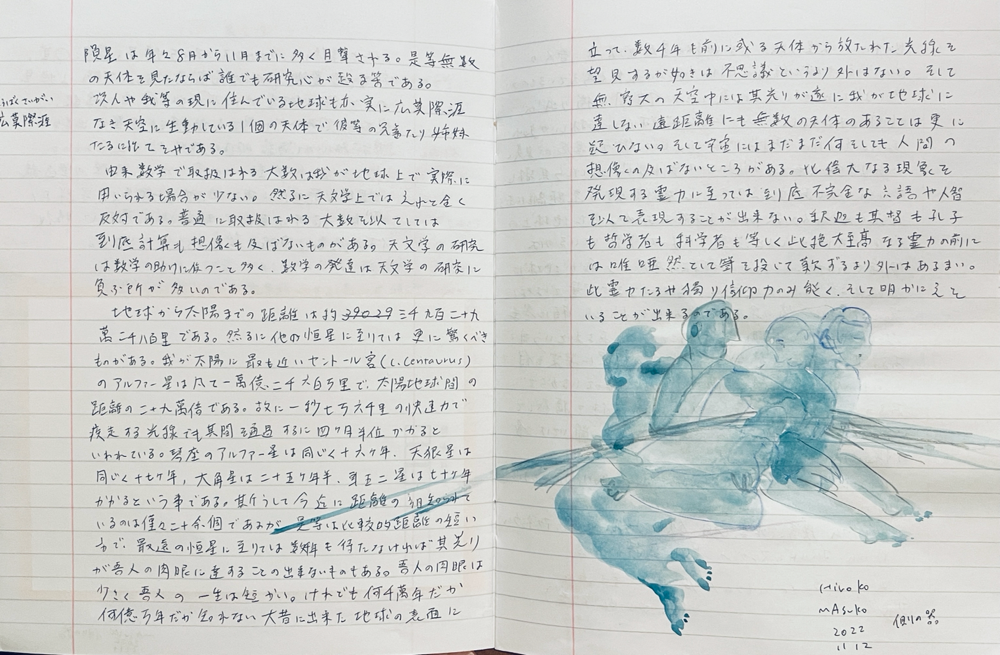 隕星は年々8月から11月までに多く目撃される。是等無数
の天体を見たならば誰でも研究心が起る筈である。
吹人や我等の現に住んでいる地球も亦実に広莫際涯
広莫際涯
なき天空に生動している1個の天体で彼等の兄弟たり姉妹
たるに比て
由来数学で取扱はれる大数は我が地球上で実際に
用いられる場合が少ない。然るに天文学上ではそれと全く
反対である。普通に取扱はれる大数を以てしては
到底計算も想像も及ばないものがある。天文学の研究
は数学の助けに待つこと多く、数学の発達は天文学の研究に
負ふ所が多いのである。
地球から太陽までの距離は約 三千九百二十九
萬二千八百里である。然るに他の恒星に至りては更に驚くべき
ものがある。我が太陽に最も近いセントール宮(L.Centaurus)
のアルファー星は凡て一萬億、二千六百万里で、太陽地球間の
距離の二十九萬倍である。故に一秒七万六千里の快速力で
疾走する光線でも其間を通過するに四ヶ月半位かかると
いわれている。琴座のアルファー星は同じく十六ヶ年、天狼星は
同じく十七ヶ年、大角星は二十五ヶ年半、 星は七十ヶ年
かかるという事である。斯うして今迄に距離の 知られて
いるのは僅々二十余個であるが、是等は比較的距離の短い
方で、最遠の恒星に至りては 年も待たなければ其光り
が吾人の肉眼に達することの出来ないものもある。吾人の肉眼は
少さく吾人の一生は短かい。けれども何千萬年だか
何億万年だか知れない大昔に出来た地球の表面に
立って、数千年も前に或る天体から放たれた光線を
望見するが如きは不思議というより外はない。そして
無 大の天空中には其光りが遂に我が地球に
達しない遠距離にも無数の天体のあることは更に
疑ひない。そして宇宙にはまだまだ何としても人間の
想像の及ばないところがある。此偉大なる現象を
発現する霊力に至っては到底不完全な言語や人智
を以て表現することが出来ない。釈迦も基督も孔子
も哲学者も科学者も等しく此絶大至高なる霊力の前に
は唯唖然として筆を投じて歎ずるより外はあるまい。
此霊力たるや独り信仰力のみ能く、そして明かにこそ
いることが出来るのである。
Hiroko
mAsuko
2022
11 12